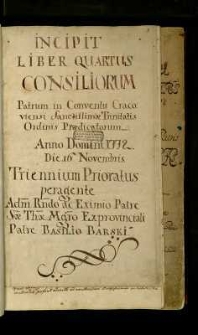 INCIPIT
LIBER QUARTUS
CONSILIORUM
Patrum in Conventu Craco
viensi Sanctissimæ Trinitatis
Ordinis Prædicatorum
Anno Domini 1772
Die 16 Novembris
Triennium Prioratus
peragente
Adm Rndo ac Eximio Patre
Sæ Thæ Mgro Exprovinciali
Patre BASILIO BARSKI